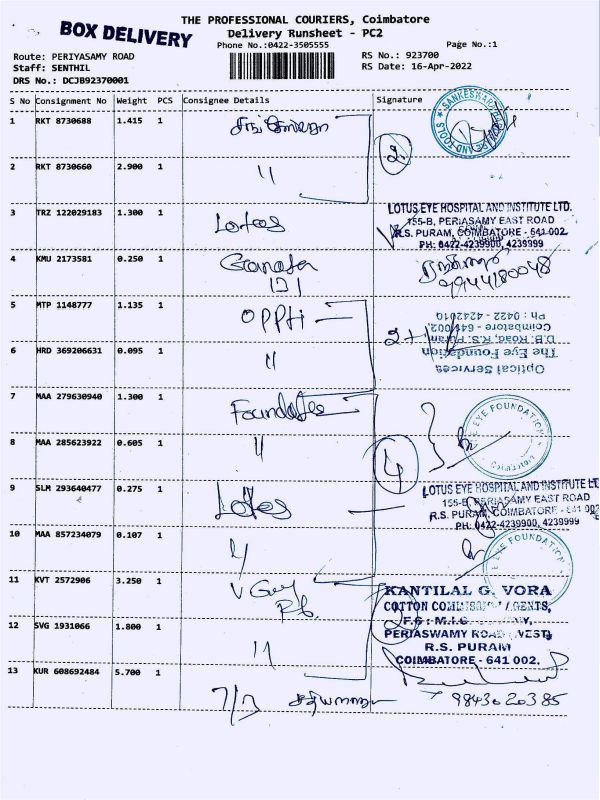 THE PROFESSIONAL COURIERS, Coimbatore
BOX DELIVERY
Delivery Runsheet - PC2
Phone No.:0422-3505555
Page No.:1
Route: PERIYASAMY ROAD
RS No.: 923700
Staff: SENTHIL
RS Date: 16-Apr-2022
DRS No.: DCJB92370001
S No Consignment No Weight PCS Consignee Details Signature
1 RKT 8730688 1.415 1
SANKESHAR
AND TOOLS
2.
2 RKT 8730660 2.900 1 "
3 TRZ 122029183 1.300 1 Lotus
LOTUS EYE HOSPITAL AND INSTITUTE LTD.
155-B, PERIASAMY EAST ROAD
R.S. PURAM, COIMBATORE - 641 002.
PH: 0422-4239900, 4239999
4 KMU 2173581 0.250 1
121
9944180048
5 MTP 1148777 1.135 1 OPPti
2+1
Optical Services
The Eye Foundation
D.B. Road, R.S. Puram,
Coimbatore - 641 002.
Ph : 0422 - 4242010
6 HRD 369206631 0.095 1 "
7 MAA 279630940 1.300 1
EYE FOUNDATION
8 MAA 285623922 0.605 1 "
4
9 SLM 293640477 0.275 1 Lotus
LOTUS EYE HOSPITAL AND INSTITUTE LT
155-B, PERIASAMY EAST ROAD
R.S. PURAM, COIMBATORE - 641 002
PH: 0422-4239900, 4239999
10 MAA 857234079 0.107 1 "
EYE FOUNDATION
11 KVT 2572906 3.250 1
KANTILAL G. VORA
COTTON COMMISSION AGENTS,
PERIASWAMY ROAD (WEST)
R.S. PURAM
COIMBATORE - 641 002.
12 SVG 1931066 1.800 1 "
13 KUR 608692484 5.700 1
9843020385